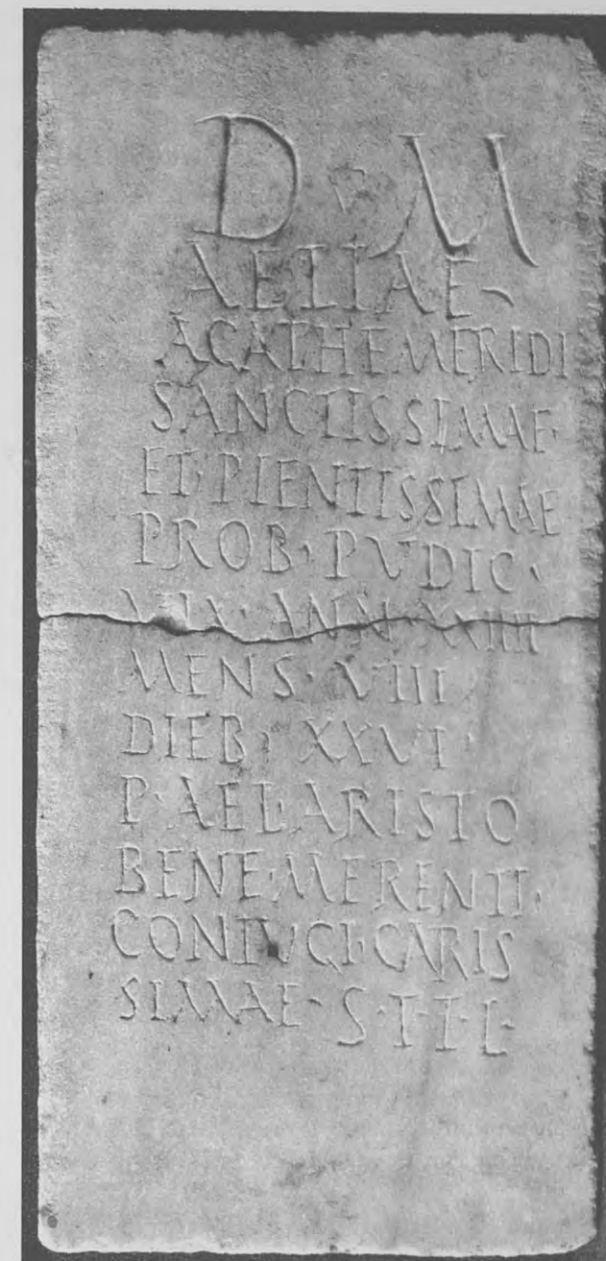 D · M
AELIAE
AGATHEMERIDI
SANCTISSIMAE ·
ET · PIENTISSIMAE
PROB · PUDIC ·
VIX · ANN · XXIIII
MENS · VIII
DIEB · XXVI ·
P · AEL · ARISTO
BENE · MERENTI ·
CONIUGI · CARIS
SIMAE · S · T · T · L ·